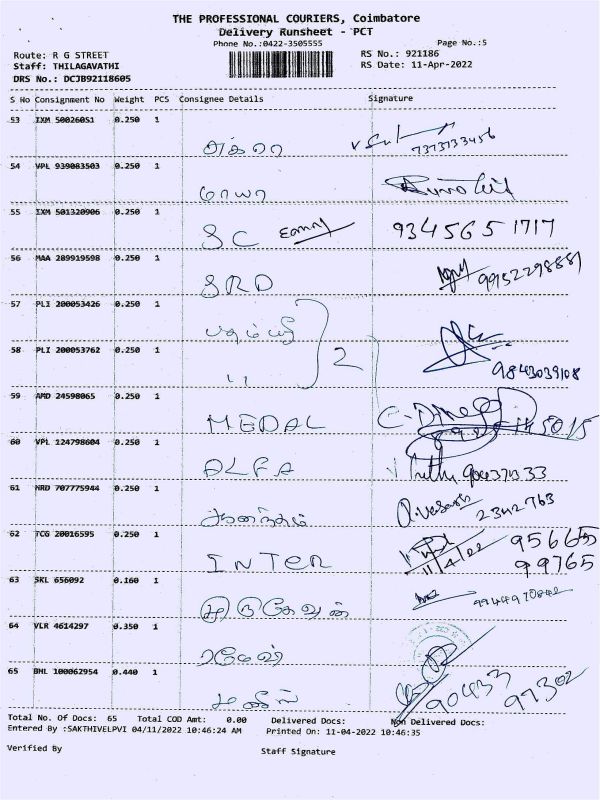 THE PROFESSIONAL COURIERS, Coimbatore
Delivery Runsheet - PCT
Phone No.:0422-3505555
Page No.:5
Route: R G STREET
RS No.: 921186
Staff: THILAGAVATHI
RS Date: 11-Apr-2022
DRS No.: DCJB92118605
S No Consignment No Weight PCS Consignee Details Signature
53 IXM 500260S1 0.250 1
7373733456
54 VPL 939083503 0.250 1
மாயா
55 IXM 501320906 0.250 1
SC 934565 1717
56 MAA 289919598 0.250 1
SRD 99152298881
57 PLI 200053426 0.250 1
58 PLI 200053762 0.250 1
" 2 9843039108
59 AMD 24598065 0.250 1
MEDAL
60 VPL 124798604 0.250 1
ALFA
61 NRD 707775944 0.250 1
ஆனந்தம் 2342763
62 TCG 20016595 0.250 1
INTER 11/4/22
99765
63 SKL 656092 0.160 1
64 VLR 4614297 0.350 1
ரமேஷ்
65 BHL 100062954 0.440 1
90433 97302
Total No. Of Docs: 65 Total COD Amt: 0.00 Delivered Docs: Non Delivered Docs:
Entered By :SAKTHIVELPVI 04/11/2022 10:46:24 AM Printed On: 11-04-2022 10:46:35
Verified By
Staff Signature